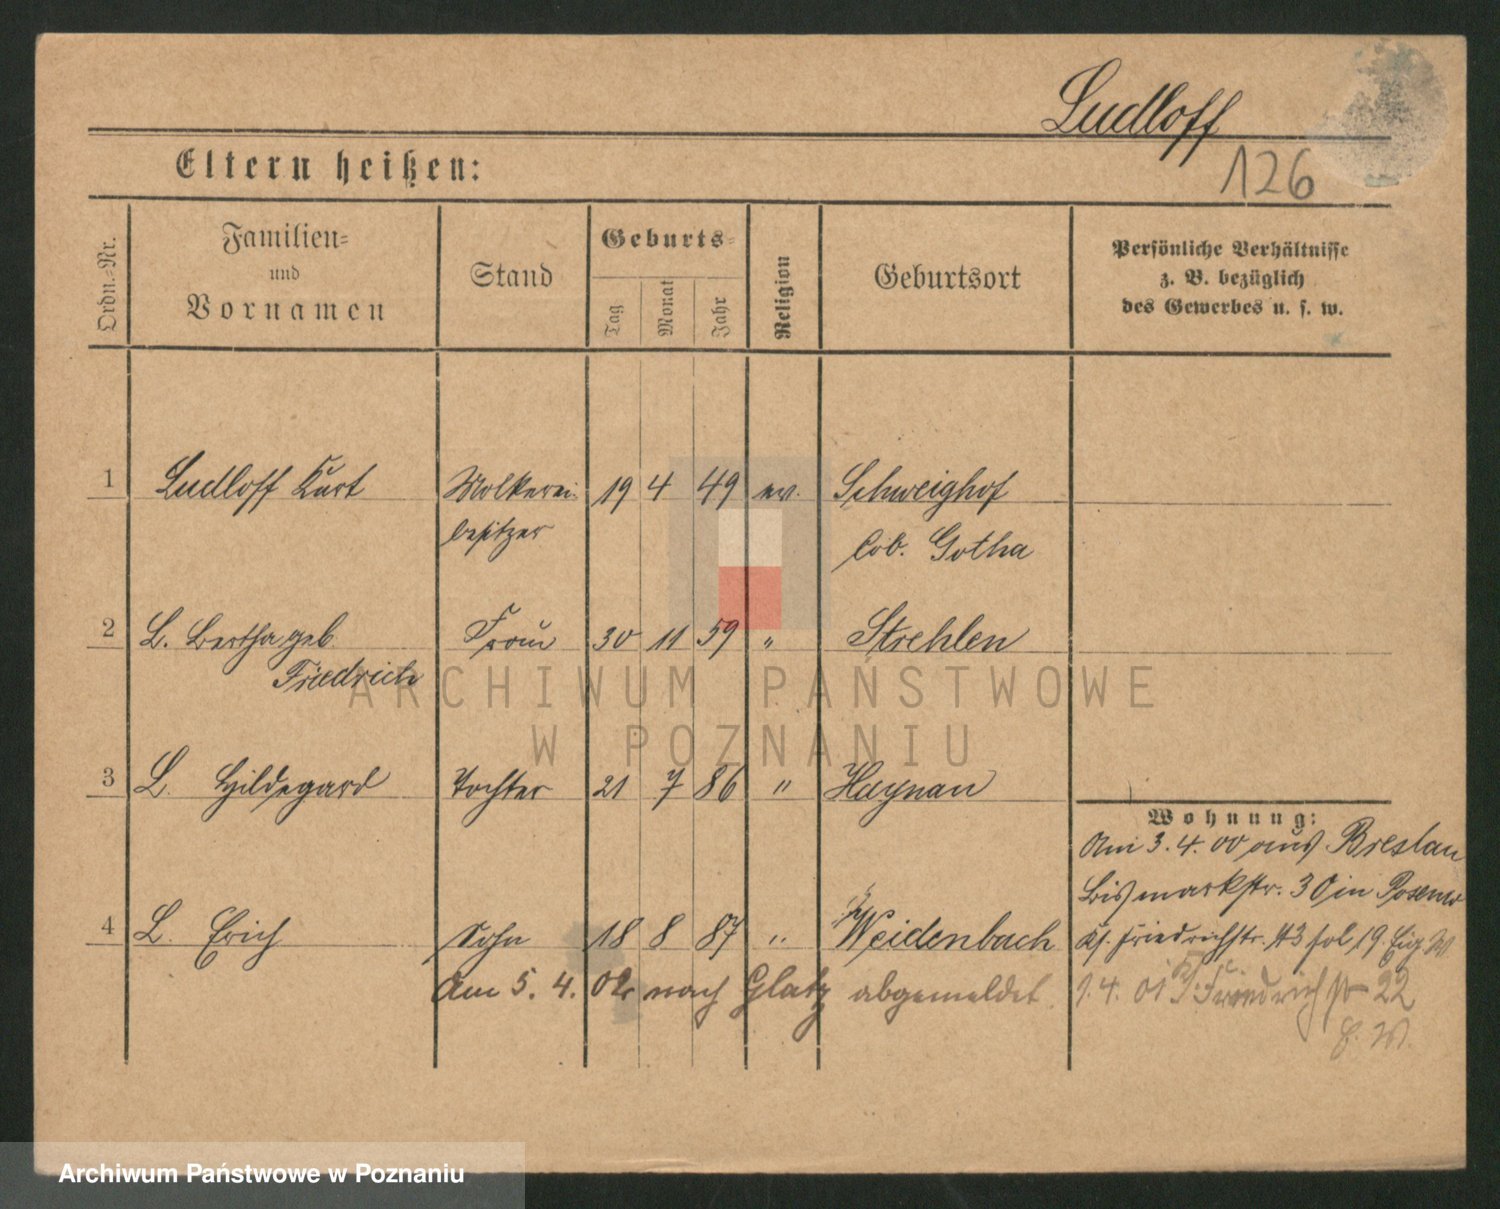 Ludloff
126
Eltern heißen:
Ordn.-Nr.
Familien-
und
Vornamen
Stand
Geburts-
Tag
Monat
Jahr
Religion
Geburtsort
Persönliche Verhältnisse
z. B. bezüglich
des Gewerbes u. s. w.
1 Ludloff Kurt Molkerei- 19 4 49 ev. Schweighof
besitzer Cob. Gotha
2 L. Bertha geb. Frau 30 11 59 " Strehlen
Friedrich
3 L. Hildegard Tochter 21 7 86 " Haynau
Wohnung:
Am 3.4.00 aus Breslau
Bismarkstr. 30 in Posen
4 L. Erich Sohn 18 8 87 " Weidenbach
Friedrichstr. 19.
Am 5. 4. 02 nach Glatz abgemeldet.
1.4.01 Friedrichstr 22
ARCHIWUM PAŃSTWOWE
W POZNANIU
Archiwum Państwowe w Poznaniu